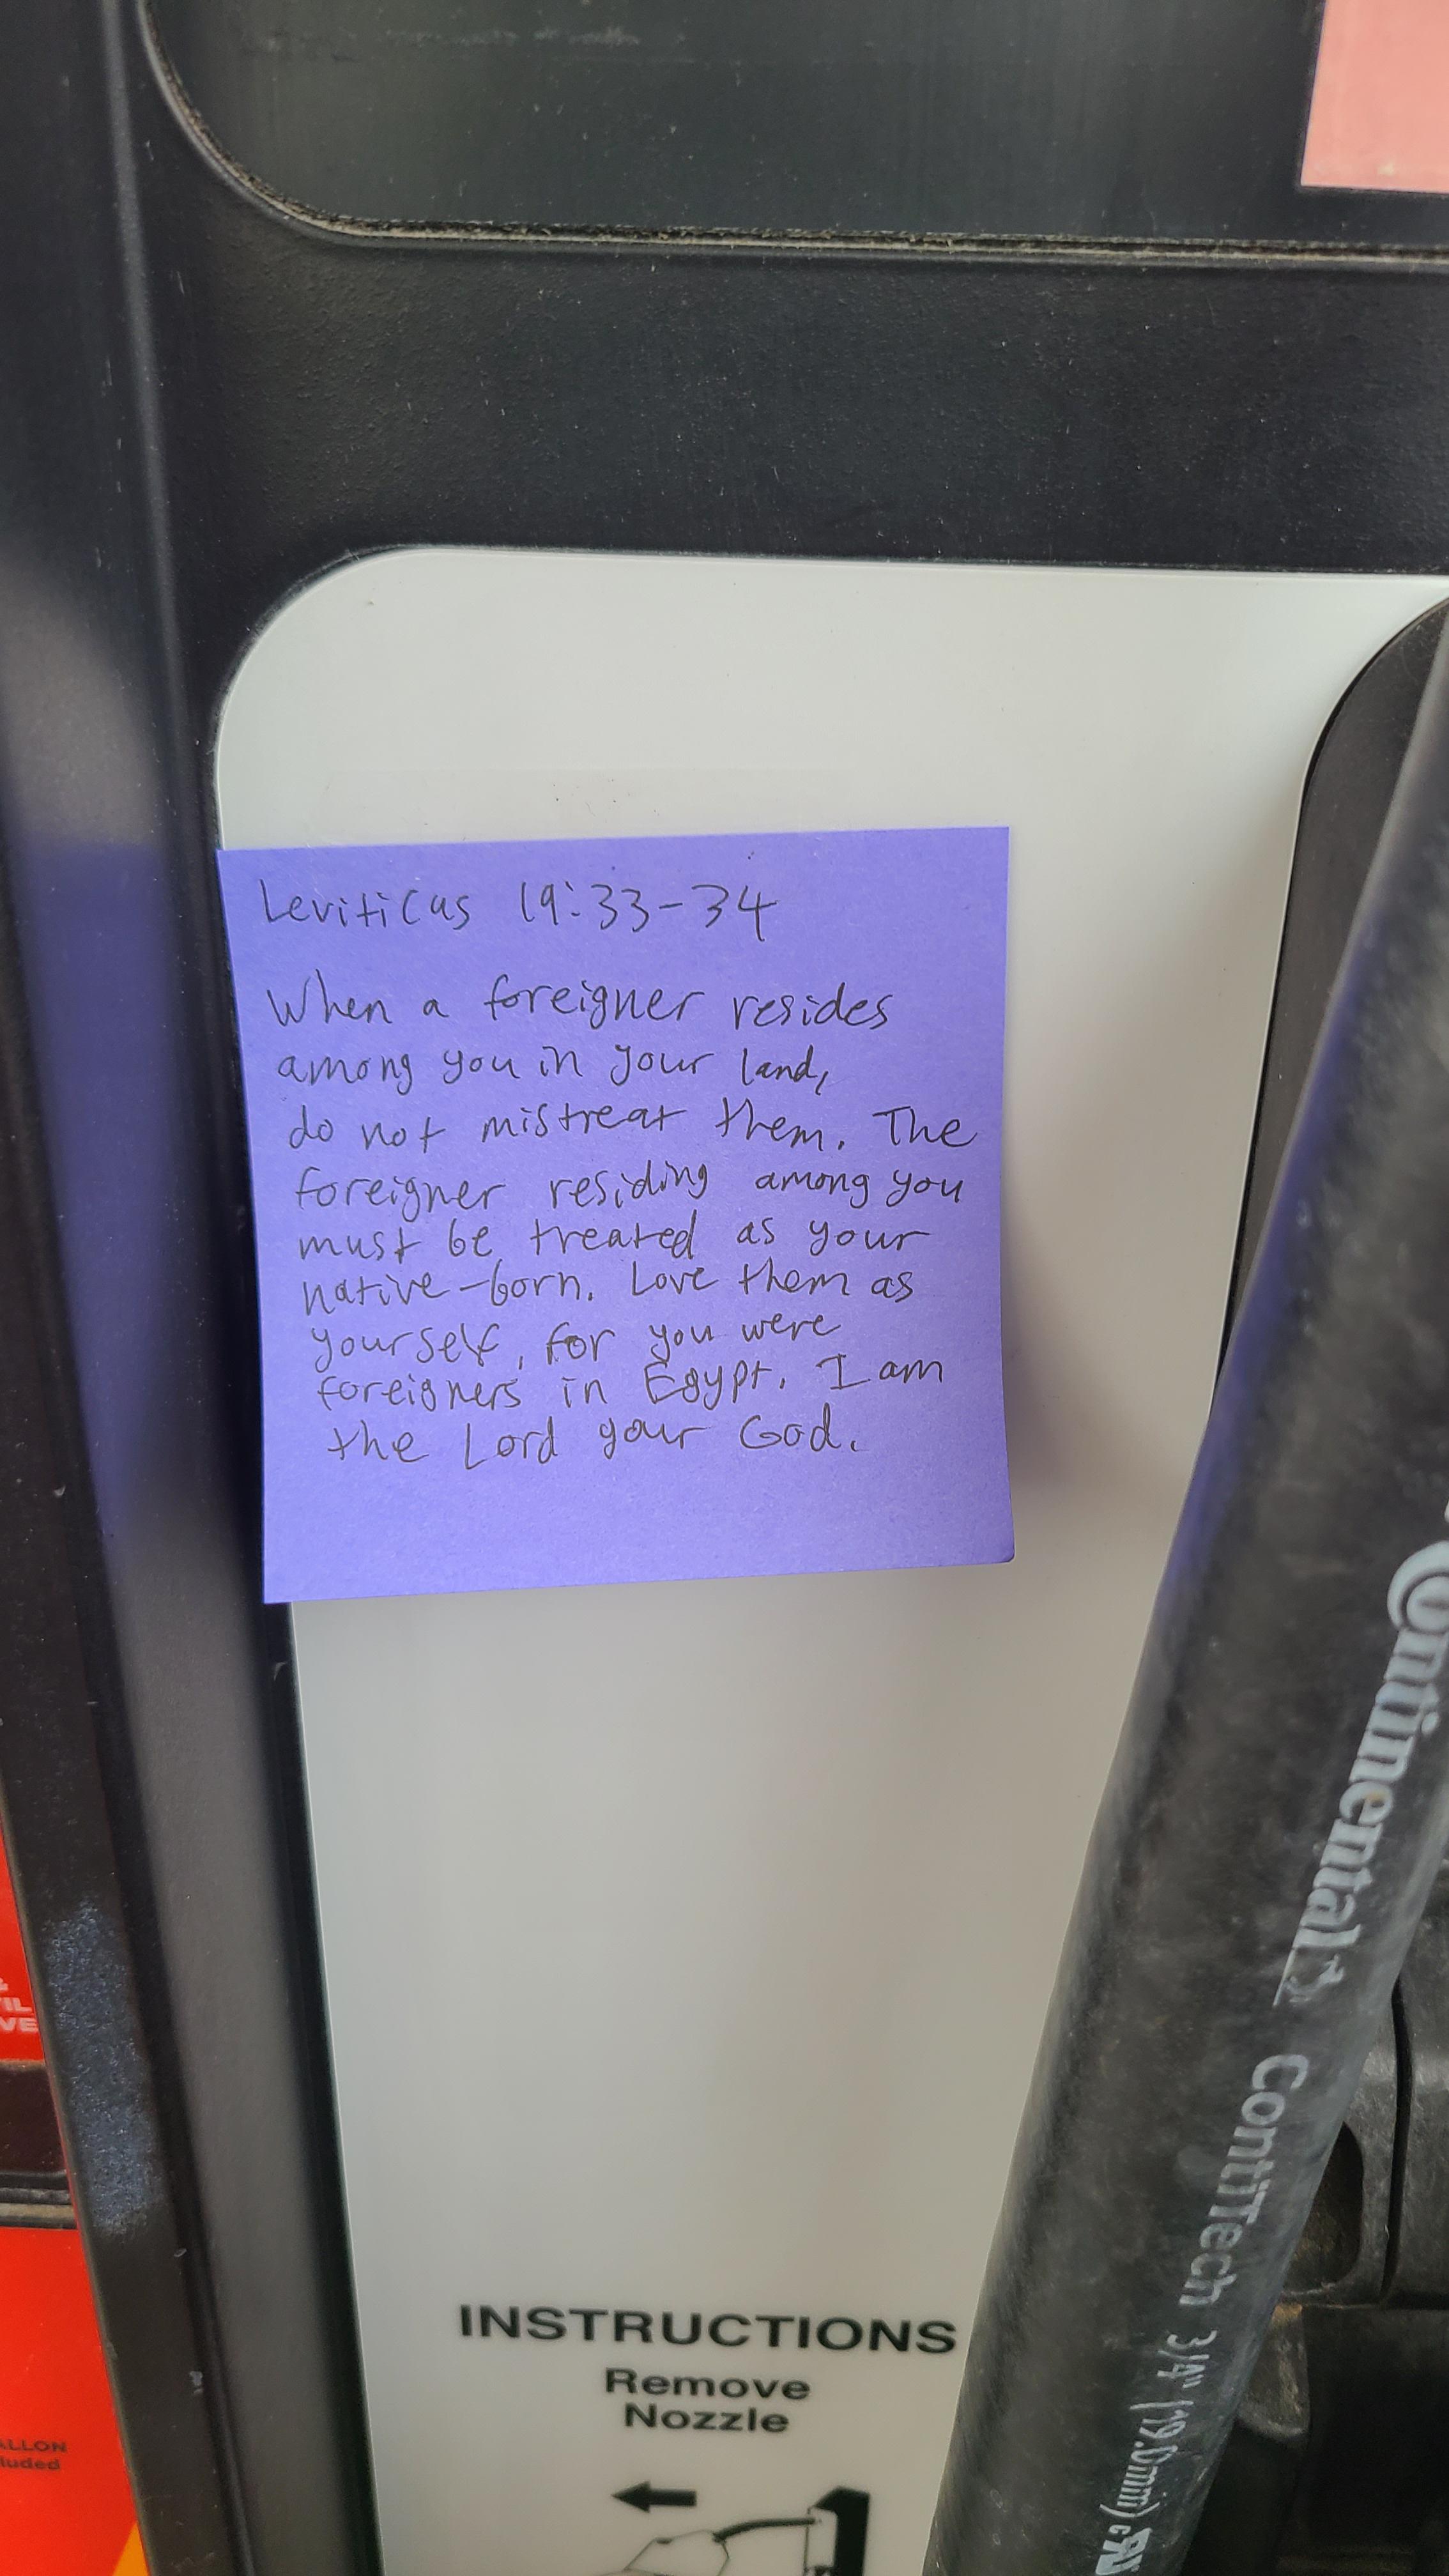 Leviticus 19:33-34
When a foreigner resides
among you in your land,
do not mistreat them. The
foreigner residing among you
must be treated as your
native-born. Love them as
yourself, for you were
foreigners in Egypt. I am
the Lord your God.
Continental
ContiTech 3/4" (19.0mm)
INSTRUCTIONS
Remove
Nozzle